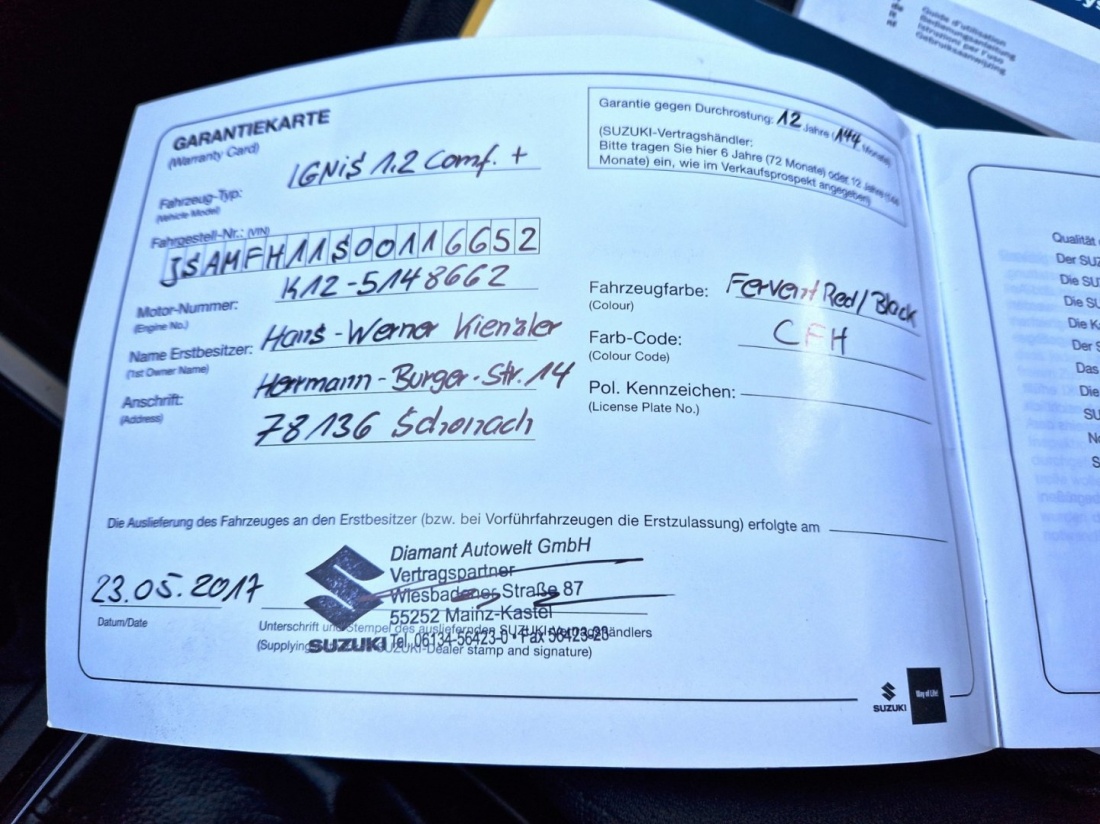 Guide d'utilisation
Bedienungsanleitung
Istruzioni per l'uso
Gebruiksaanwijzing
GARANTIEKARTE
(Warranty Card)
IGNiS 1.2 Comf. +
Fahrzeug-Typ:
(Vehicle Model)
Fahrgestell-Nr.: (VIN)
JSAMFH11S00116652
K12-5148662
Motor-Nummer:
(Engine No.)
Name Erstbesitzer: Hans-Werner Kienzler
(1st Owner Name)
Herrmann-Burger-Str. 14
Anschrift:
(Address)
78136 Schonach
Garantie gegen Durchrostung: 12 Jahre (144 Monate)
(SUZUKI-Vertragshändler:
Bitte tragen Sie hier 6 Jahre (72 Monate) oder 12 Jahre (144
Monate) ein, wie im Verkaufsprospekt angegeben)
Fahrzeugfarbe: Fervent Red/Black
(Colour)
Farb-Code: CFH
(Colour Code)
Pol. Kennzeichen:
(License Plate No.)
Die Auslieferung des Fahrzeuges an den Erstbesitzer (bzw. bei Vorführfahrzeugen die Erstzulassung) erfolgte am
23.05.2017
Datum/Date
Diamant Autowelt GmbH
Vertragspartner
Wiesbadener Straße 87
55252 Mainz-Kastel
Tel. 06134-56423-0 · Fax 56423-23
SUZUKI
Unterschrift und Stempel des ausliefernden SUZUKI-Vertragshändlers
(Supplying SUZUKI-Dealer stamp and signature)
SUZUKI
Way of Life!
Qualität
Der SUZ
Die SU
Die SU
Die K
Der S
Das
Die
SU